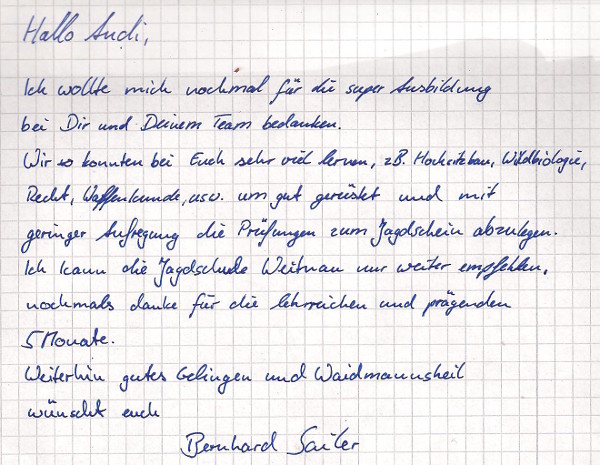 Hallo Andi,
Ich wollte mich nochmal für die super Ausbildung
bei Dir und Deinem Team bedanken.
Wir konnten bei Euch sehr viel lernen, z.B. Hochsitzbau, Wildbiologie,
Recht, Waffenkunde, usw. um gut gerüstet und mit
geringer Aufregung die Prüfungen zum Jagdschein abzulegen.
Ich kann die Jagdschule Weitnau nur weiter empfehlen,
nochmals danke für die lehrreichen und prägenden
5 Monate.
Weiterhin gutes Gelingen und Waidmannsheil
wünscht euch
Bernhard Sailer